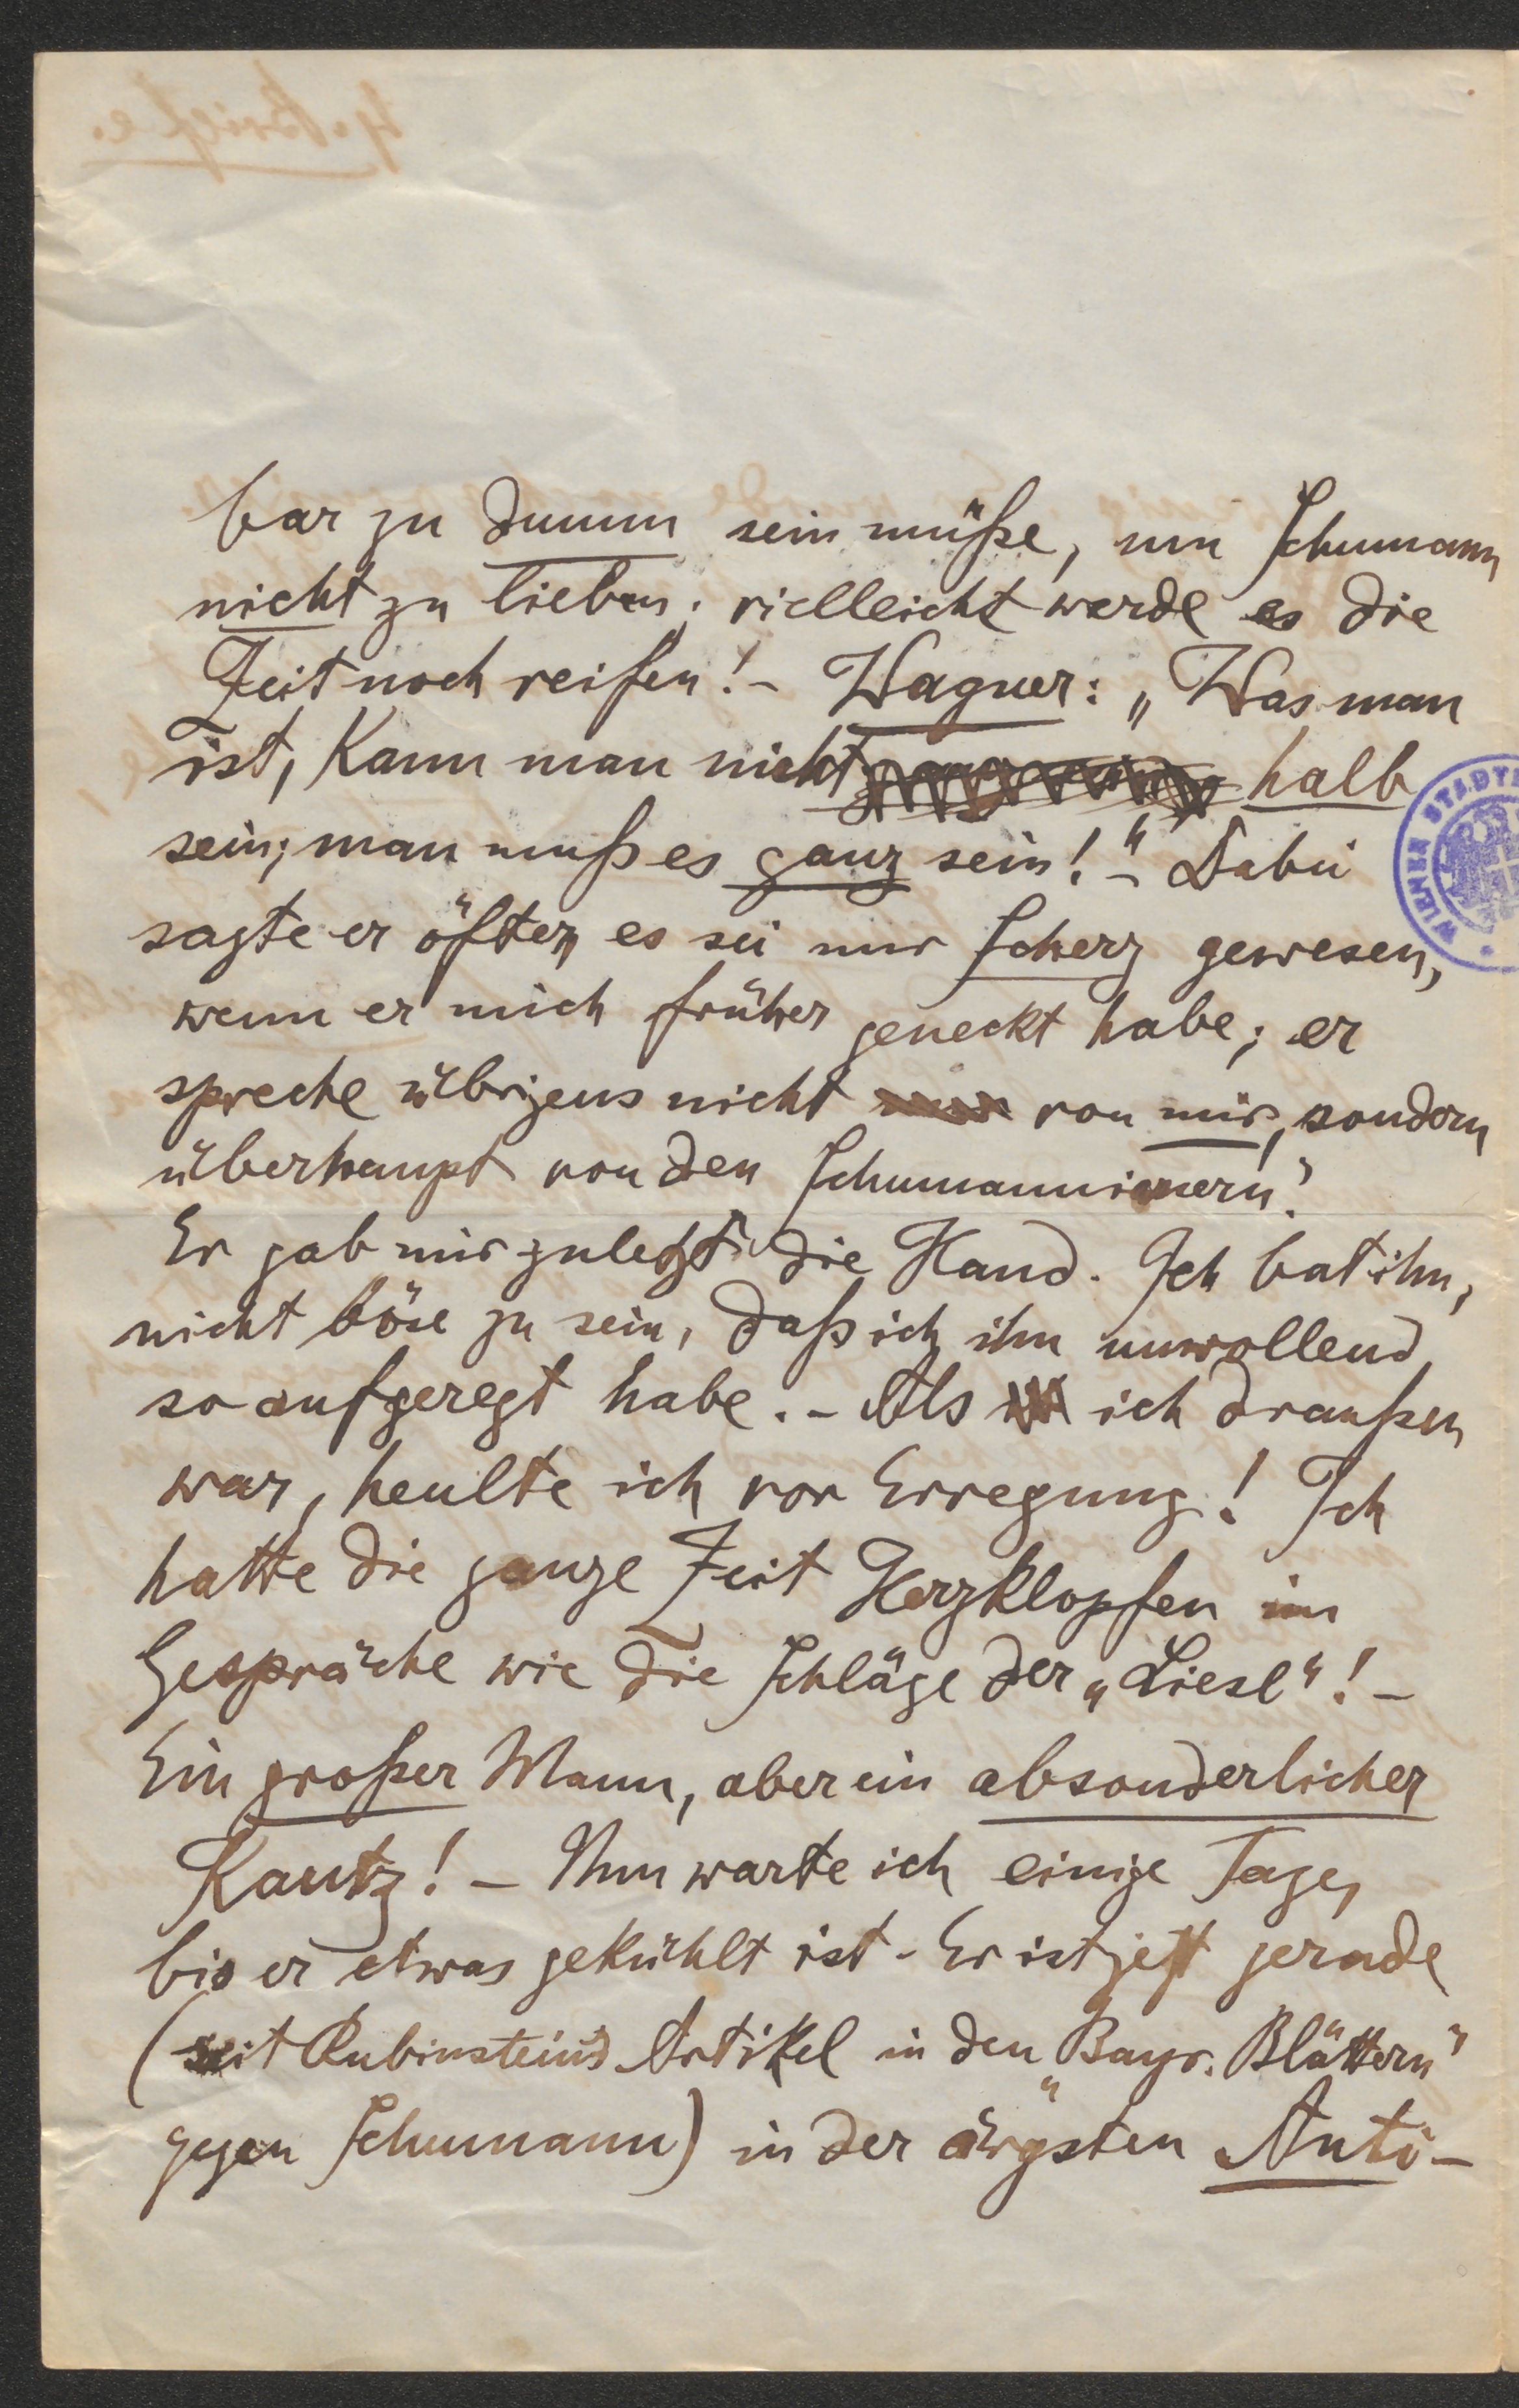 bar zu dumm sein müße, um Schumann
nicht zu lieben; vielleicht werde es die
Zeit noch reifen! – Wagner: „Was man
ist, kann man nicht halb
sein; man muß es ganz sein!“ – Dabei
sagte er öfter, es sei nur Scherz gewesen,
wenn er mich früher geneckt habe; er
spreche übrigens nicht von mir, sondern
überhaupt von den Schumannianern!
Er gab mir zuletzt die Hand. Ich bat ihn,
nicht böse zu sein, daß ich ihn unwollend
so aufgeregt habe. – Als ich draußen
war, heulte ich vor Erregung! Ich
hatte die ganze Zeit Herzklopfen im
Gespräche wie die Schläge der „Liesl“! –
Ein großer Mann, aber ein absonderlicher
Kautz! – Nun warte ich einige Tage,
bis er etwas gekühlt ist. Er ist jetzt gerade
(seit Rubinstein's Artikel in den „Bayr. Blättern“
gegen Schumann) in der ärgsten Anti-
WIENER STADT